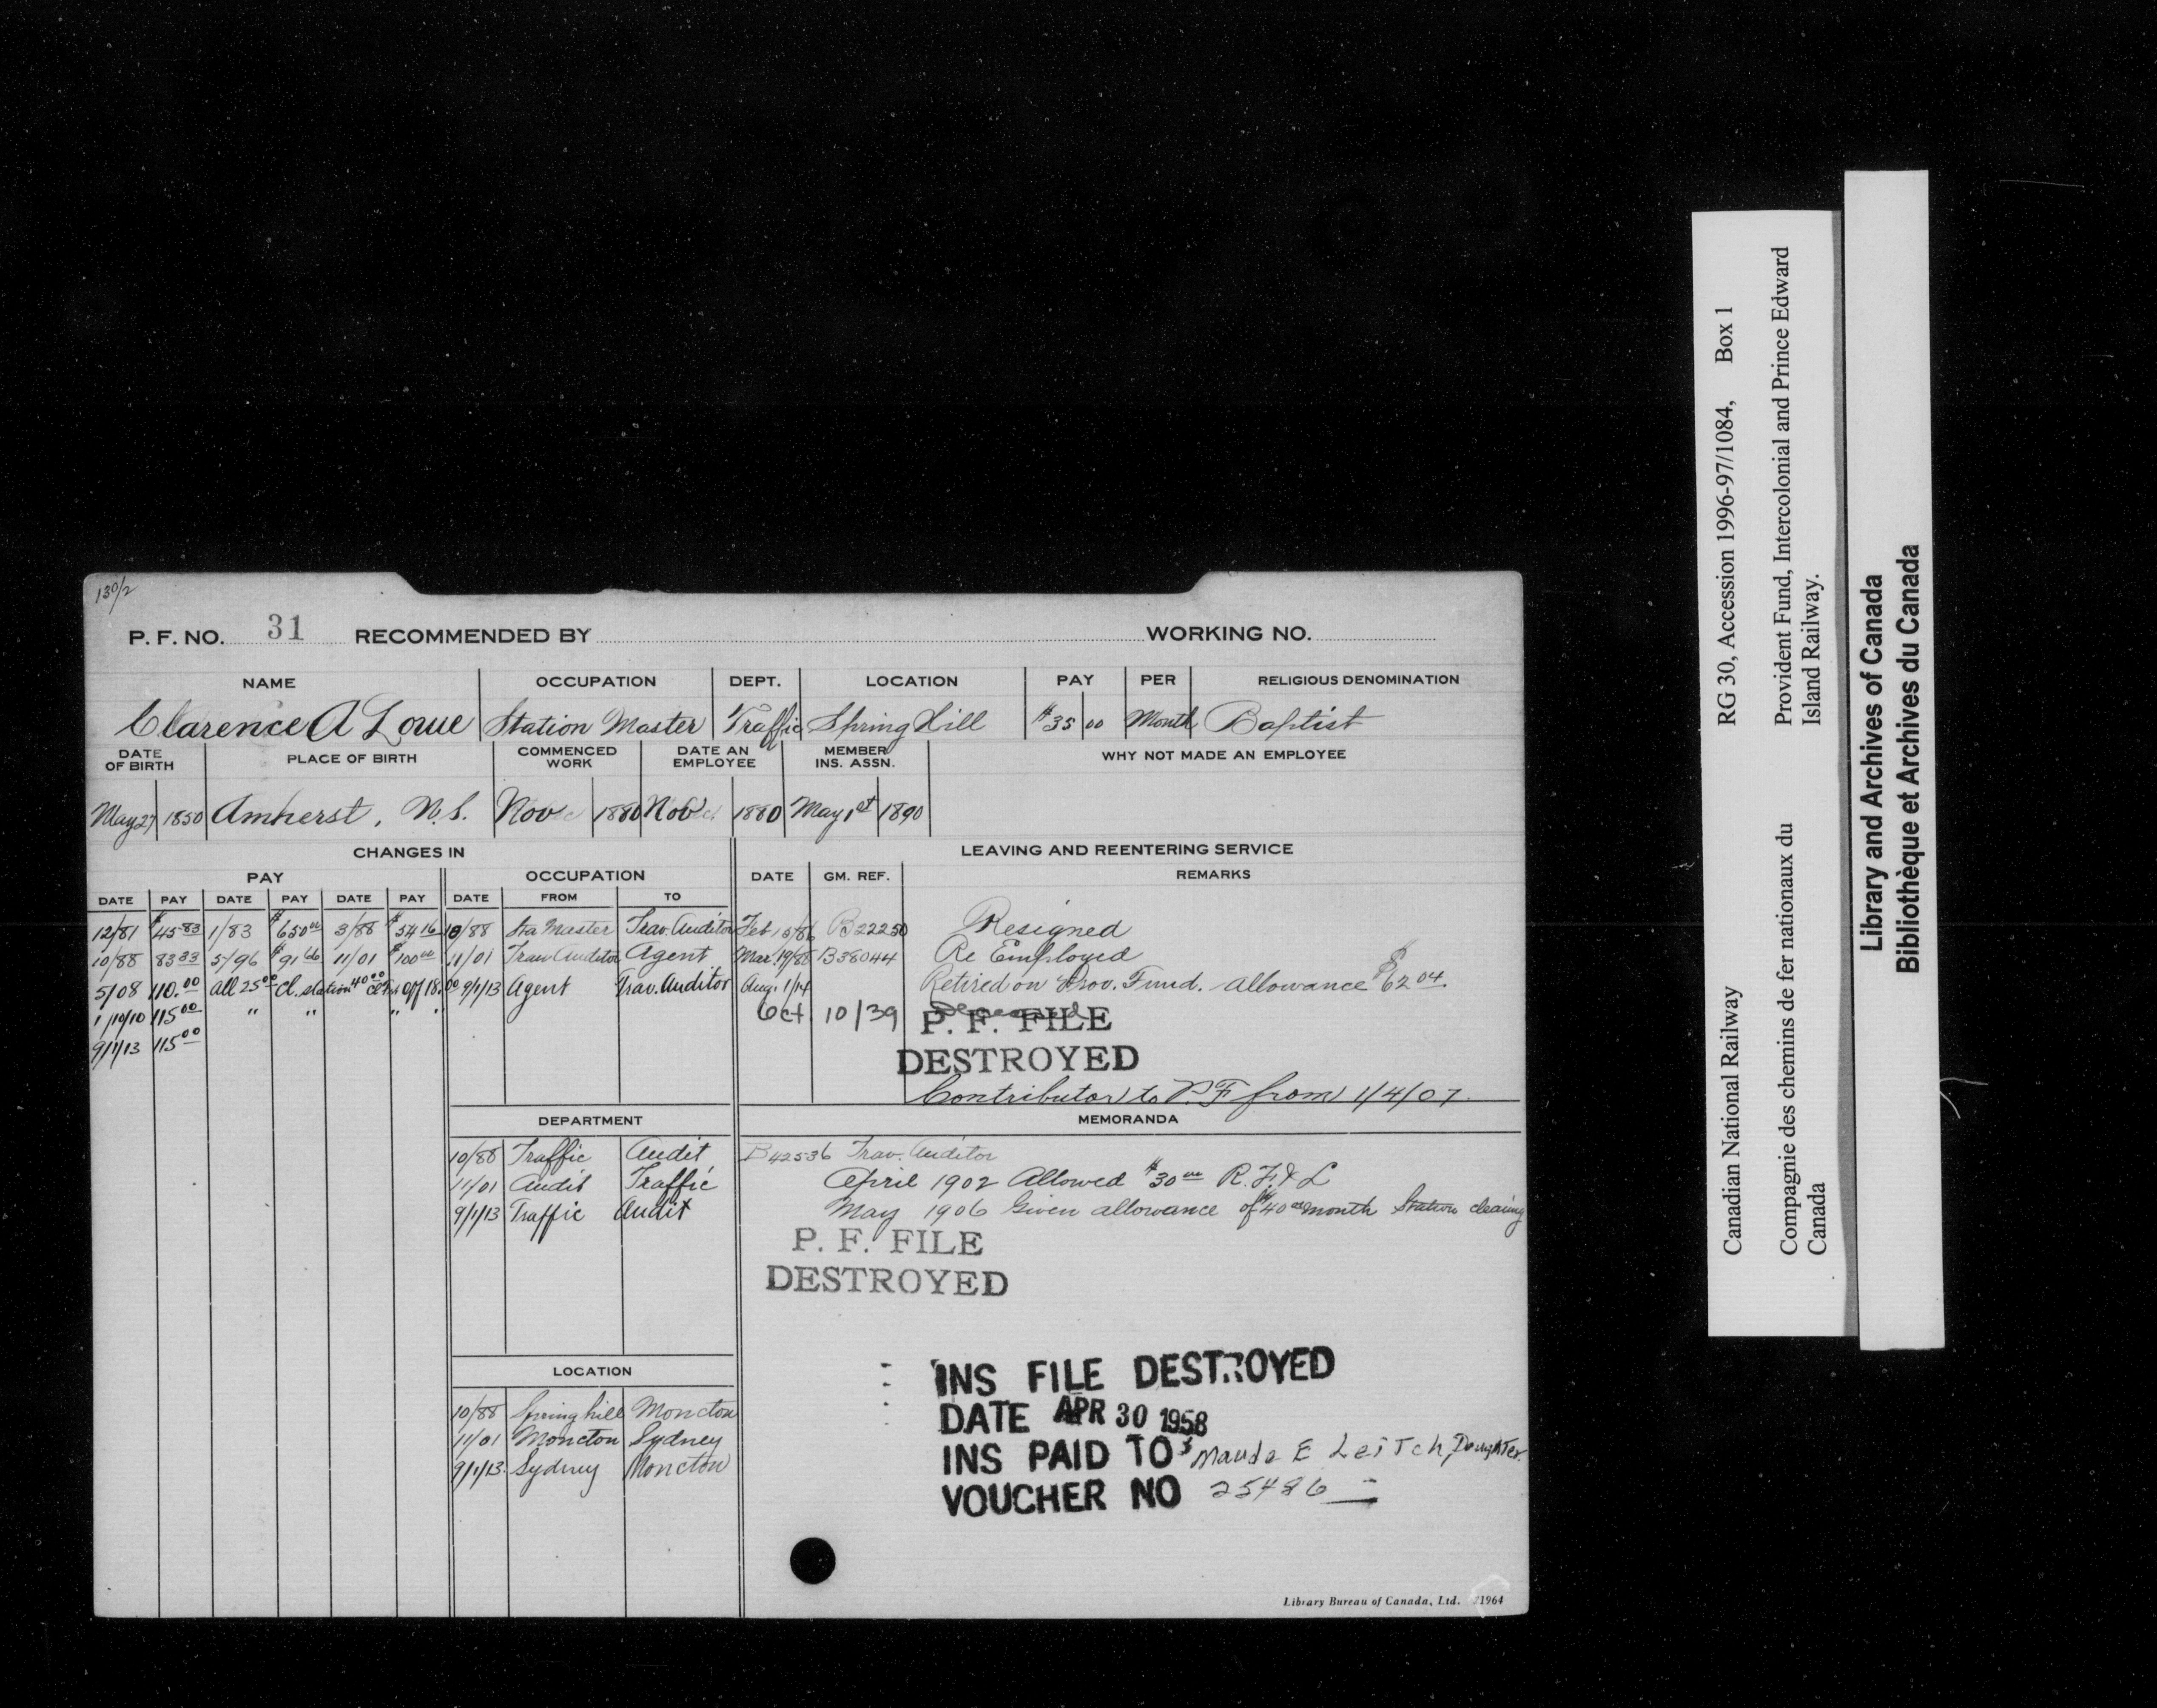 130/2
P. F. NO. 31 RECOMMENDED BY WORKING NO.
NAME OCCUPATION DEPT. LOCATION PAY PER RELIGIOUS DENOMINATION
Clarence A Lowe Station Master Traffic Spring Hill $35 00 Month Baptist
DATE OF BIRTH PLACE OF BIRTH COMMENCED WORK DATE AN EMPLOYEE MEMBER INS. ASSN. WHY NOT MADE AN EMPLOYEE
May 27 1850 Amherst, N.S. Nov 1880 Nov 1880 May 1st 1890
CHANGES IN
PAY OCCUPATION
DATE PAY DATE PAY DATE PAY DATE FROM TO
12/81 $45 83 1/83 $650 00 3/88 $54 16 10/88 Sta Master Trav. Auditor
10/88 83 33 5/96 $91 66 11/01 $100 00 11/01 Trav Auditor Agent
5/08 110.00 all 25 00 Cl. station 40 00 off 18.00 9/1/13 Agent Trav. Auditor
1/10/10 115 00 " " " "
9/1/13 115 00
DEPARTMENT
10/88 Traffic Audit
11/01 Audit Traffic
9/1/13 Traffic Audit
LOCATION
10/88 Spring hill Moncton
11/01 Moncton Sydney
9/1/13 Sydney Moncton
LEAVING AND REENTERING SERVICE
DATE GM. REF. REMARKS
Feb 15/86 B22250 Resigned
Mar. 19/88 B38044 Re Employed
Aug. 1/14 Retired on Prov. Fund. Allowance $62 04.
Oct. 10/39 Deceased
P. F. FILE
DESTROYED
Contributor to P.F from 1/4/07
MEMORANDA
B42536 Trav. Auditor
April 1902 Allowed $30 00 R. F. & L
May 1906 Given allowance of $40 00 month Station cleaning
P. F. FILE
DESTROYED
INS FILE DESTROYED
DATE APR 30 1958
INS PAID TO Maude E Leitch, Daughter.
VOUCHER NO 25486
Library Bureau of Canada, Ltd. 21964
Canadian National Railway RG 30, Accession 1996-97/1084, Box 1
Compagnie des chemins de fer nationaux du Canada
Provident Fund, Intercolonial and Prince Edward Island Railway.
Library and Archives of Canada
Bibliothèque et Archives du Canada